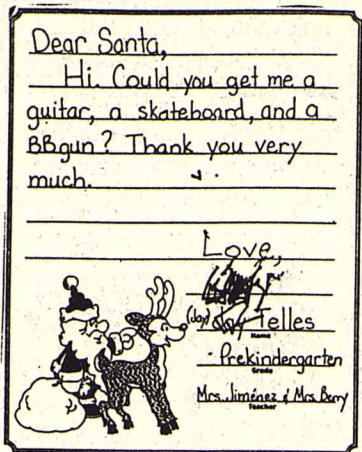 Dear Santa,
Hi. Could you get me a
guitar, a skateboard, and a
BBgun? Thank you very
much.
Love,
(Jay) Jay Telles
Name
Prekindergarten
Grade
Mrs. Jiménez & Mrs. Berry
Teacher